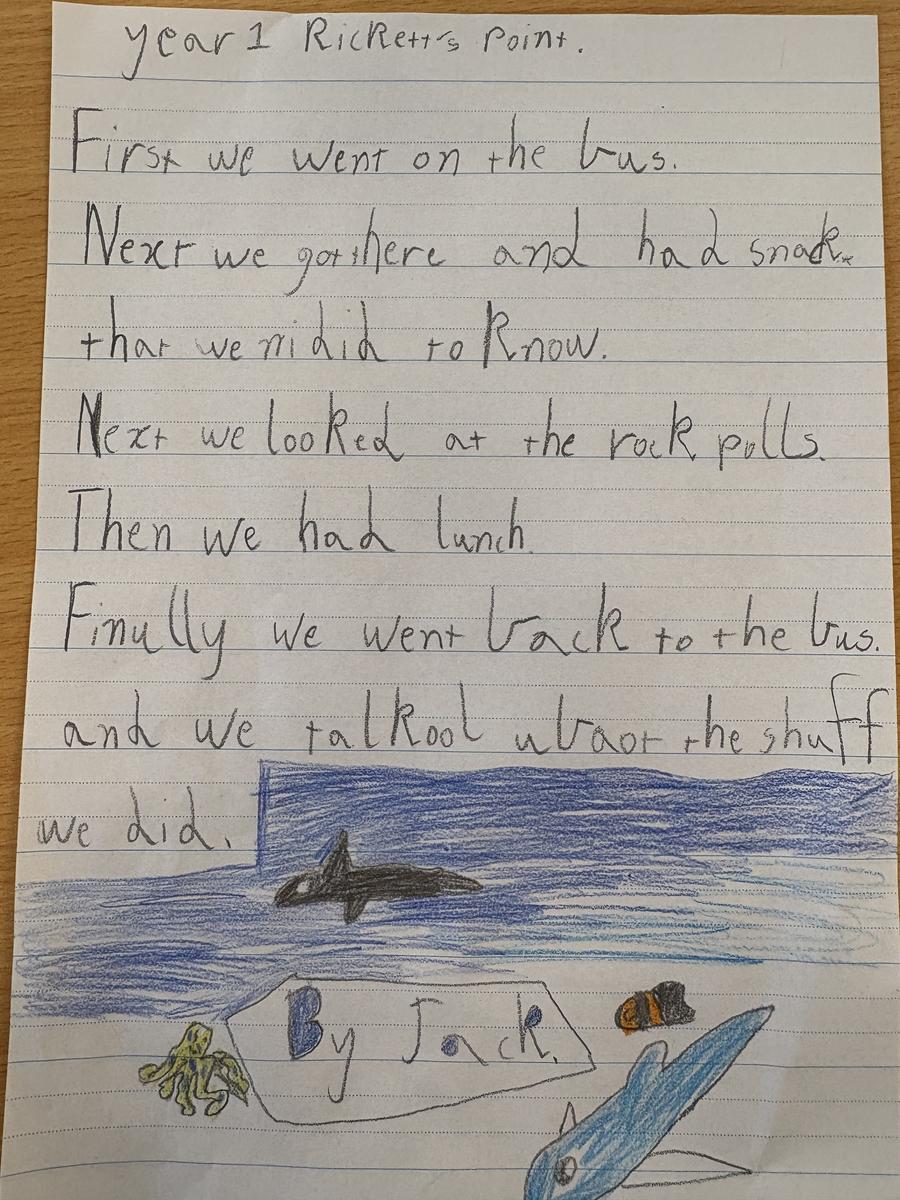 year 1 Rickett's Point.
First we went on the bus.
Next we got there and had snack.
that we nidid to know.
Next we looked at the rock polls.
Then we had lunch.
Finully we went back to the bus.
and we talkool ubaot the shuff
we did.
By Jack.